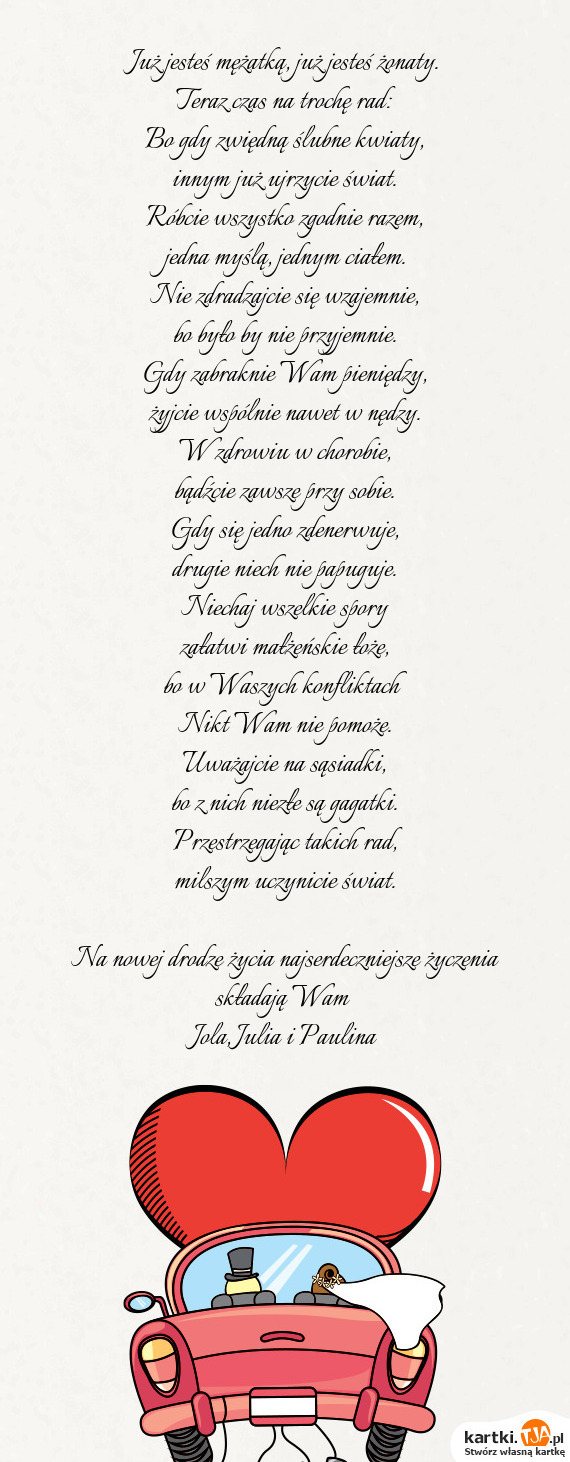 Już jesteś mężatką, już jesteś żonaty.
Teraz czas na trochę rad:
Bo gdy zwiędną ślubne kwiaty,
innym już ujrzycie świat.
Róbcie wszystko zgodnie razem,
jedna myślą, jednym ciałem.
Nie zdradzajcie się wzajemnie,
bo było by nie przyjemnie.
Gdy zabraknie Wam pieniędzy,
żyjcie wspólnie nawet w nędzy.
W zdrowiu w chorobie,
bądźcie zawsze przy sobie.
Gdy się jedno zdenerwuje,
drugie niech nie papuguje.
Niechaj wszelkie spory
załatwi małżeńskie łoże,
bo w Waszych konfliktach
Nikt Wam nie pomoże.
Uważajcie na sąsiadki,
bo z nich niezłe są gagatki.
Przestrzegając takich rad,
milszym uczynicie świat.
Na nowej drodze życia najserdeczniejsze życzenia
składają Wam
Jola,Julia i Paulina
kartki.TJA.pl
Stwórz własną kartkę